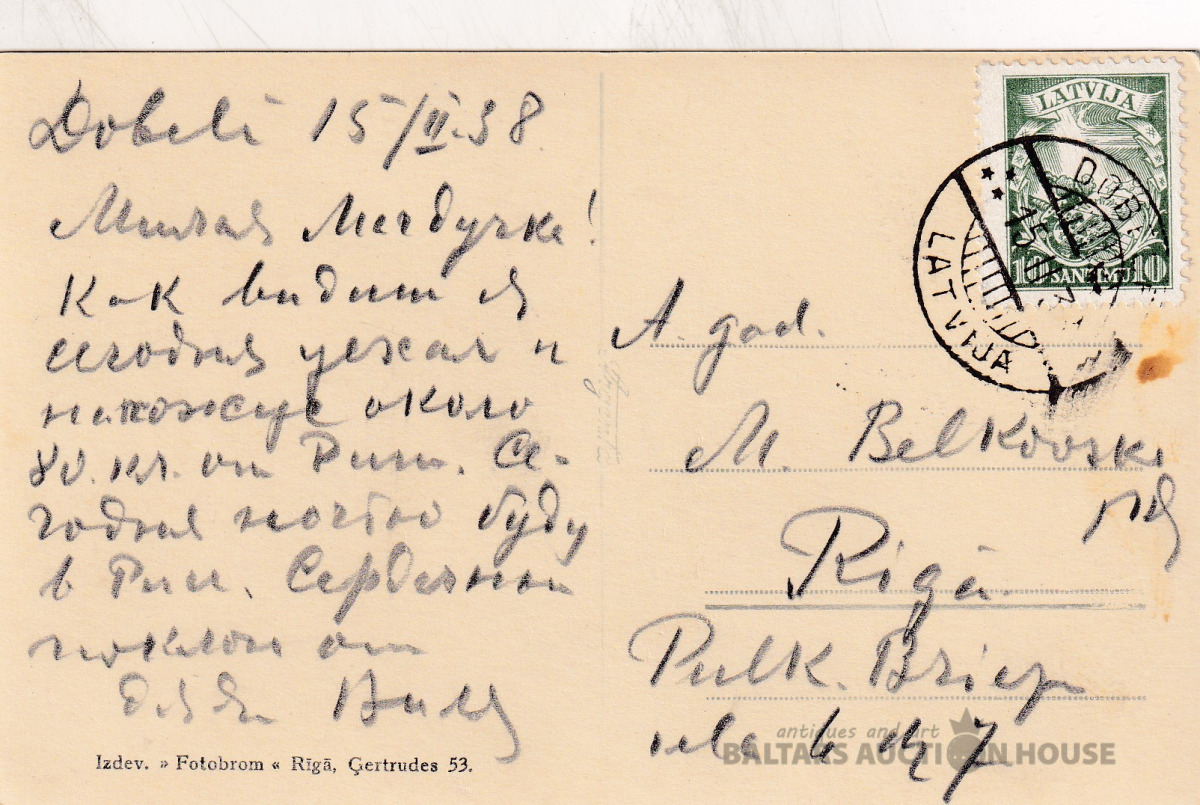 Dobelē 15/II.38
Милая Мегдучка!
Как видишь я
сегодня уехал и
нахожусь около
80. кл. от Риги. Се-
годня ночью буду
в Риги. Сердечный
поклон от
дяди
Izdev. » Fotobrom « Rīgā, Ģertrudes 53.
LATVIJA
10 SANTĪMU 10
LATVIJA
15 II
A. god.
M. Belkovsk
Rīgā.
Pulk. Brieža
iela 6 dz 7
antiques and art
BALTARS AUCTION HOUSE